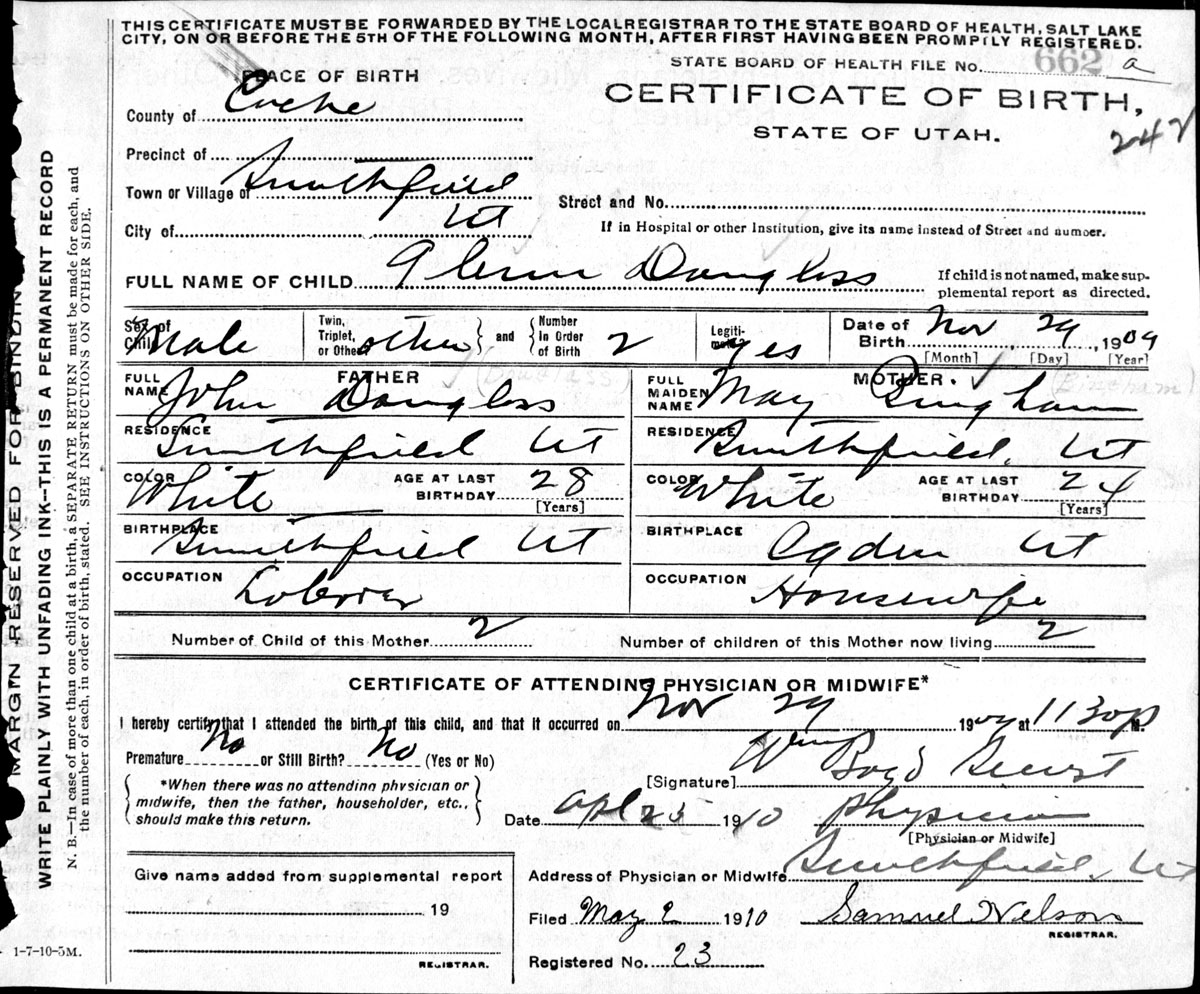 THIS CERTIFICATE MUST BE FORWARDED BY THE LOCAL REGISTRAR TO THE STATE BOARD OF HEALTH, SALT LAKE
CITY, ON OR BEFORE THE 5TH OF THE FOLLOWING MONTH, AFTER FIRST HAVING BEEN PROMPTLY REGISTERED.
STATE BOARD OF HEALTH FILE No. 662 a
PLACE OF BIRTH
CERTIFICATE OF BIRTH,
STATE OF UTAH.
242
County of Cache
Precinct of
Town or Village of Smithfield
Street and No.
City of Ut
If in Hospital or other Institution, give its name instead of Street and number.
FULL NAME OF CHILD Glenn Douglass
If child is not named, make sup-
plemental report as directed.
Sex of Child Male
Twin, Triplet, or Other other and Number In Order of Birth 2
Legiti- mate yes
Date of Birth Nov 29, 1909
[Month] [Day] [Year]
FATHER (Douglass)
FULL NAME John Douglass
MOTHER. (Bingham)
FULL MAIDEN NAME May Bingham
RESIDENCE Smithfield Ut
RESIDENCE Smithfield, Ut
COLOR White AGE AT LAST BIRTHDAY 28 [Years]
COLOR White AGE AT LAST BIRTHDAY 24 [Years]
BIRTHPLACE Smithfield Ut
BIRTHPLACE Ogden Ut
OCCUPATION Laborer
OCCUPATION Housewife
Number of Child of this Mother 2
Number of children of this Mother now living 2
CERTIFICATE OF ATTENDING PHYSICIAN OR MIDWIFE*
I hereby certify that I attended the birth of this child, and that it occurred on Nov 29 1909 at 1130 p M.
Premature No or Still Birth? No (Yes or No)
*When there was no attending physician or
midwife, then the father, householder, etc.,
should make this return.
[Signature] Wm Boyd
Date Apl 25 1910 Physician
[Physician or Midwife]
Give name added from supplemental report
19
REGISTRAR.
Address of Physician or Midwife Smithfield, Ut
Filed May 2 1910 Samuel Nelson
REGISTRAR.
Registered No. 23
1-7-10-5M.
MARGIN RESERVED FOR BINDING
WRITE PLAINLY WITH UNFADING INK--THIS IS A PERMANENT RECORD
N. B.—In case of more than one child at a birth, a SEPARATE RETURN must be made for each, and
the number of each, in order of birth, stated. SEE INSTRUCTIONS ON OTHER SIDE.